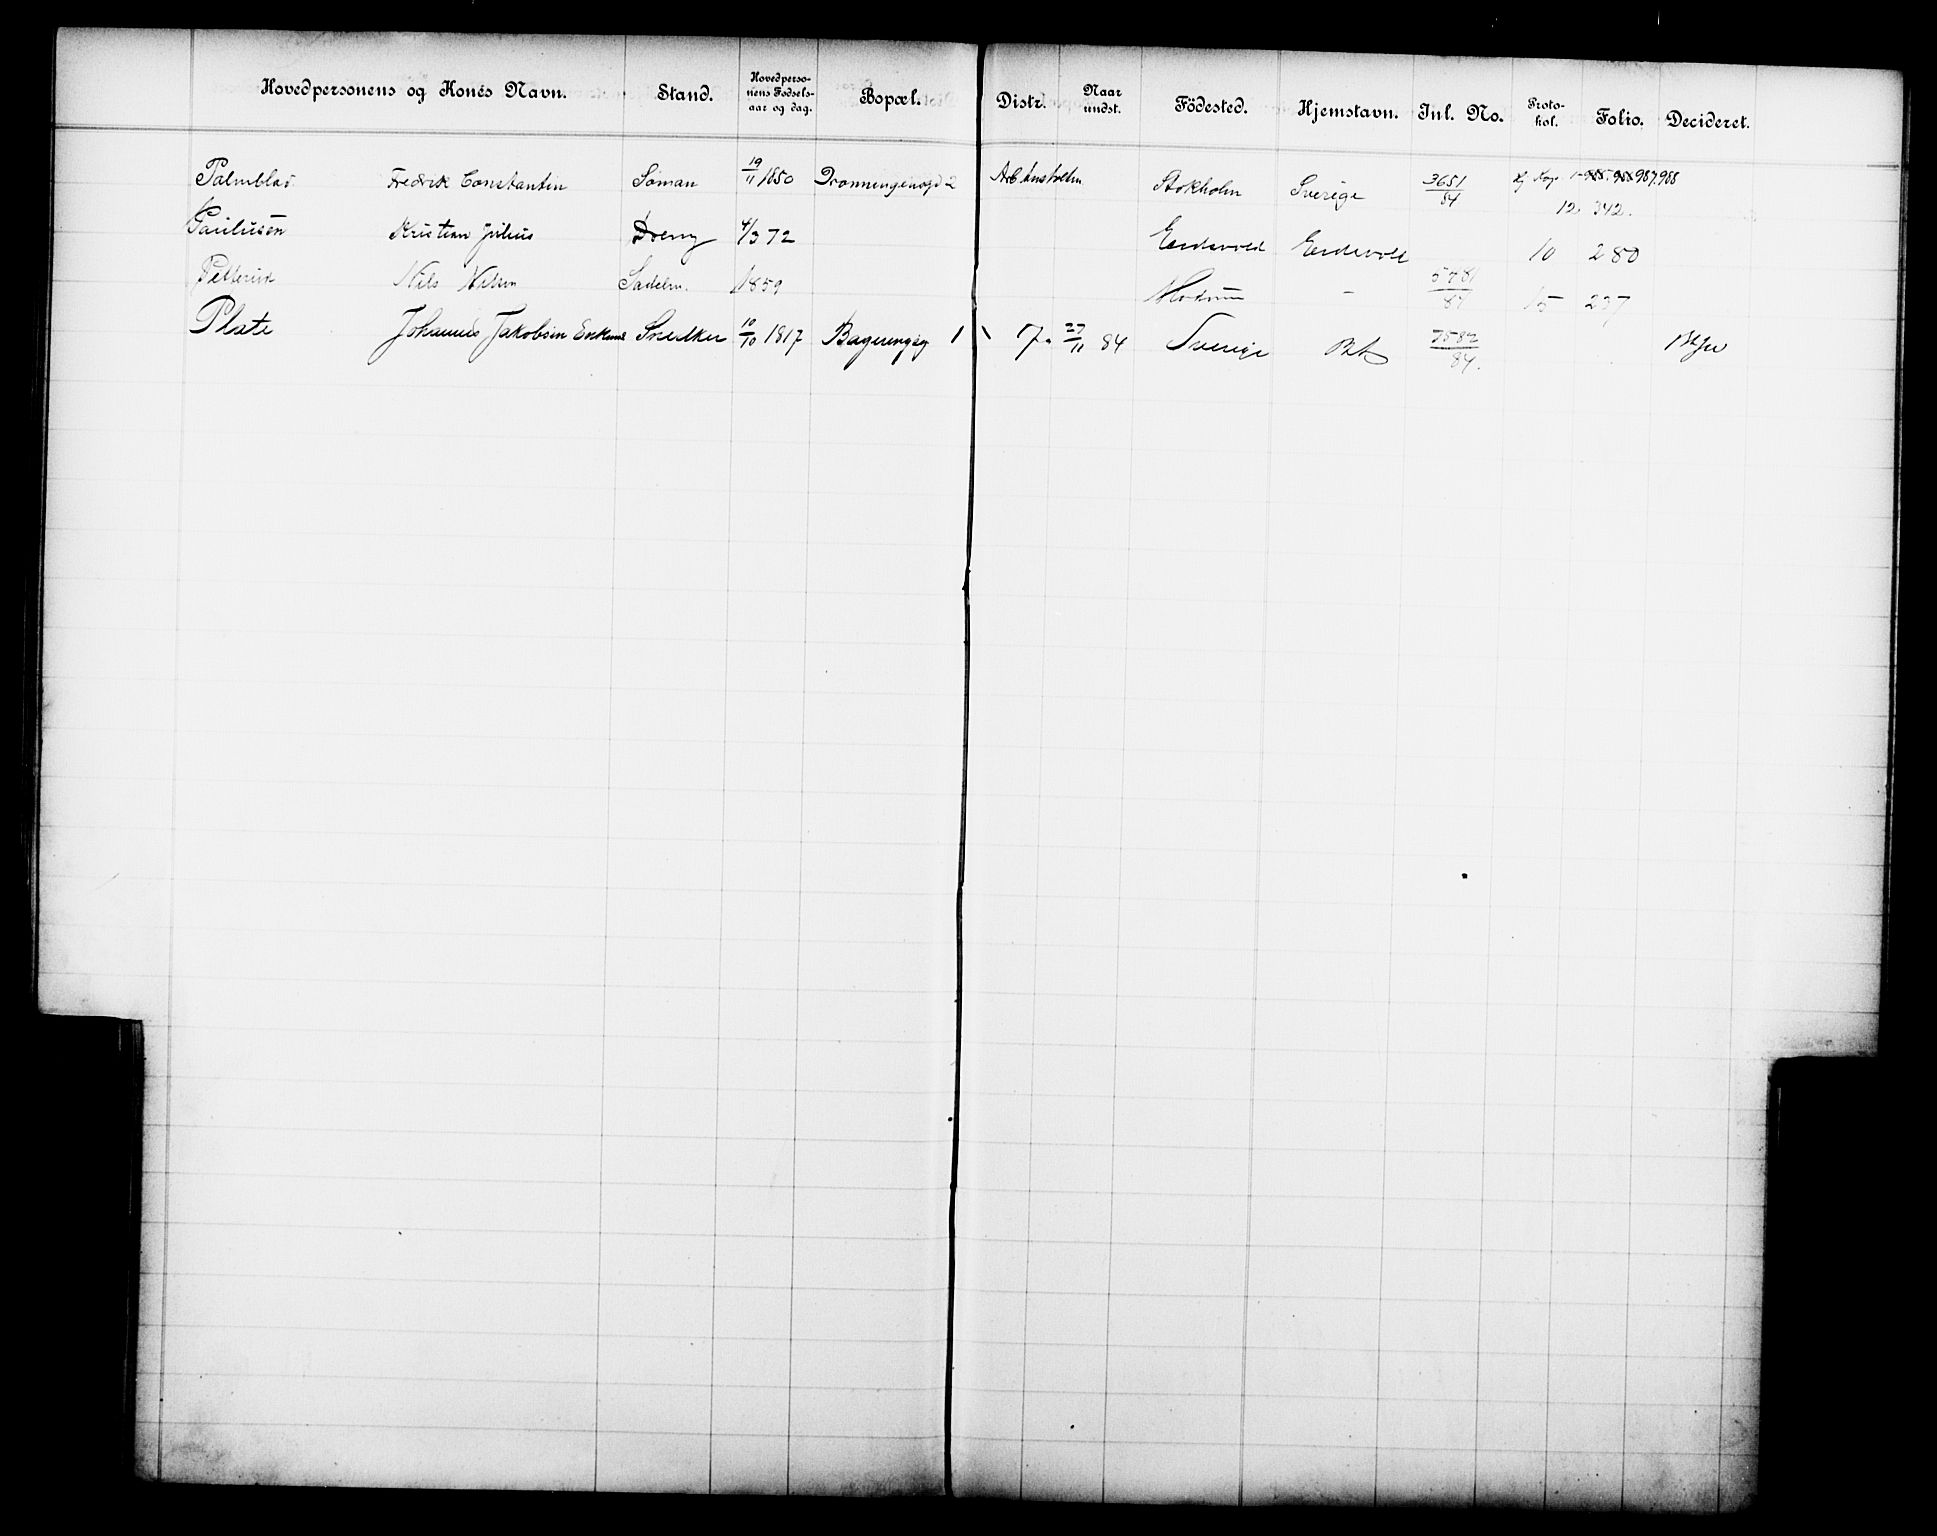 Hovedpersonens og Konés Navn. Stand. Hovedpersonens Fødselsaar og dag. Bopæl. Distr. Naar undst. Födested. Hjemstavn. Inl. No. Protokol. Folio. Decideret.
Palmblad Fredrik Constantin Sömand 19/11 1850 Dronningensgd 2 Stokholm Sverige 3651/84 987.988
12 342.
Paulusen Kristian Julius Dreng 4/3 72 Eidsvold Eidsvold 10 280
Petterud Nils Nilsen Sadelm. 1859 Modum - 5781/84 15 237
Plate Johannes Jakobsen Snedker 10/10 1817 Bageringsg 1 7. 27/11 84 Sverige 7582/84.